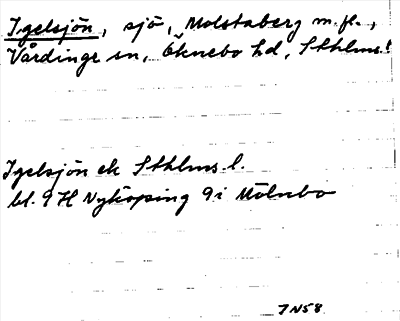 Igelsjön, sjö, Molstaberg m.fl.,
Vårdinge sn, Öknebo hd, Sthlms l
Igelsjön ek Sthlms l.
bl. 9 H Nyköping 9i Mölnbo
7N58